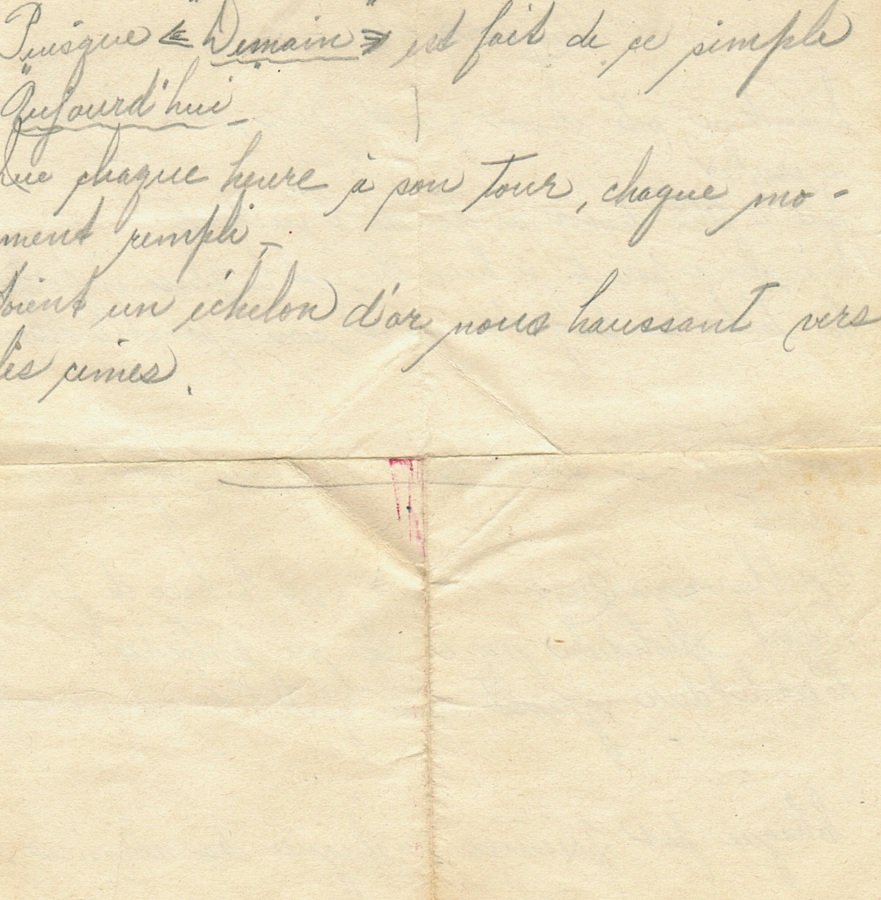 Puisque « Demain » est fait de ce simple
"Aujourd'hui" -
Que chaque heure à son tour, chaque mo-
ment rempli -
Soient un échelon d'or nous haussant vers
les cimes.